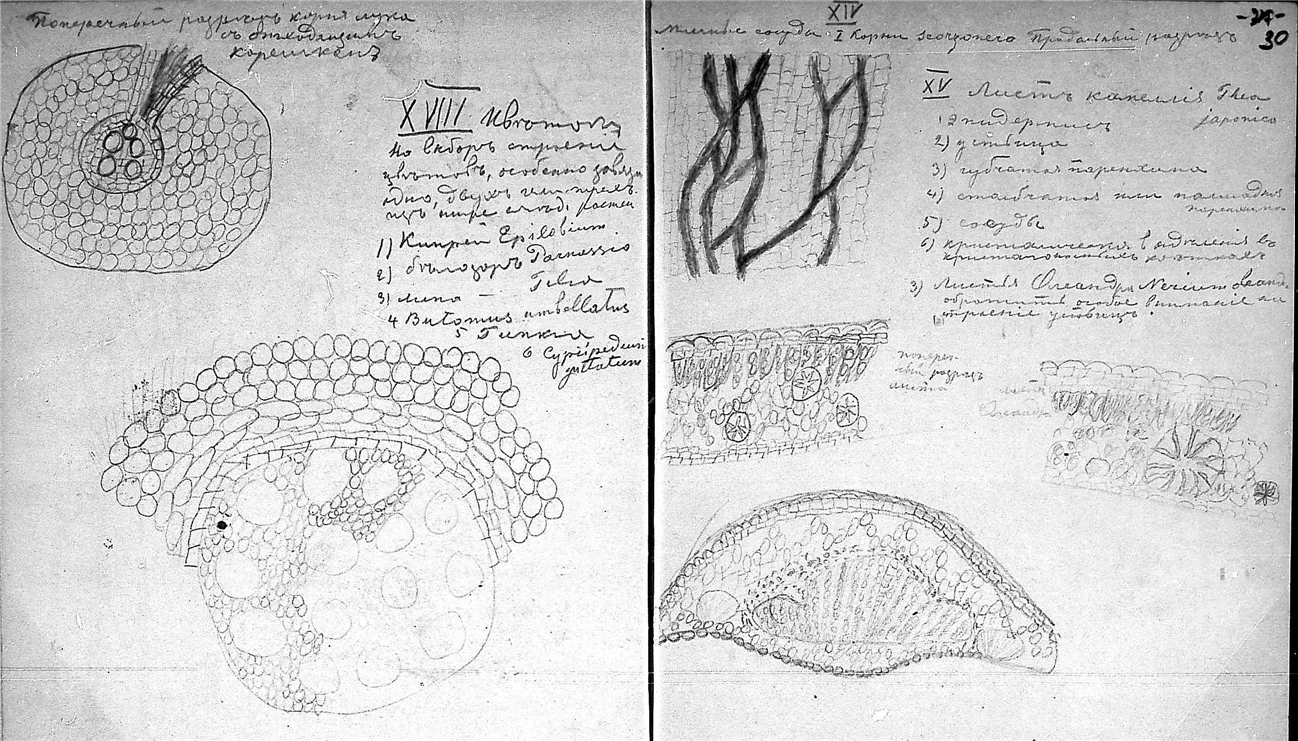 Поперечный разрезъ корня лука
съ отходящимъ
корешкомъ
XVIII Цвѣтокъ
На выборъ строение
цвѣтовъ, особенно завязи
одно, двухъ или трехъ
изъ ниже слѣд. растен
1) Кипрей Epilobium.
2) бѣлозоръ Parnassia
3) липа Tilia
4 Butomus umbellatus
5
6 Cypripedium
guttatum
XIV
30
Млечные сосуды. I Корни Scorzonera Продольный разрезъ
XV Листъ камеліи Thea
japonica
1) Эпидермисъ
2) устьица
3) губчатая паренхима
4) столбчатая или палисадная
паренхима
5) сосуды
6) кристаллическія в
3) Листья Олеандра Nerium oleand.
обратить особое вниманіе на
строеніе устьицъ.
попереч-
ный разрезъ
листа
листъ
Олеандра